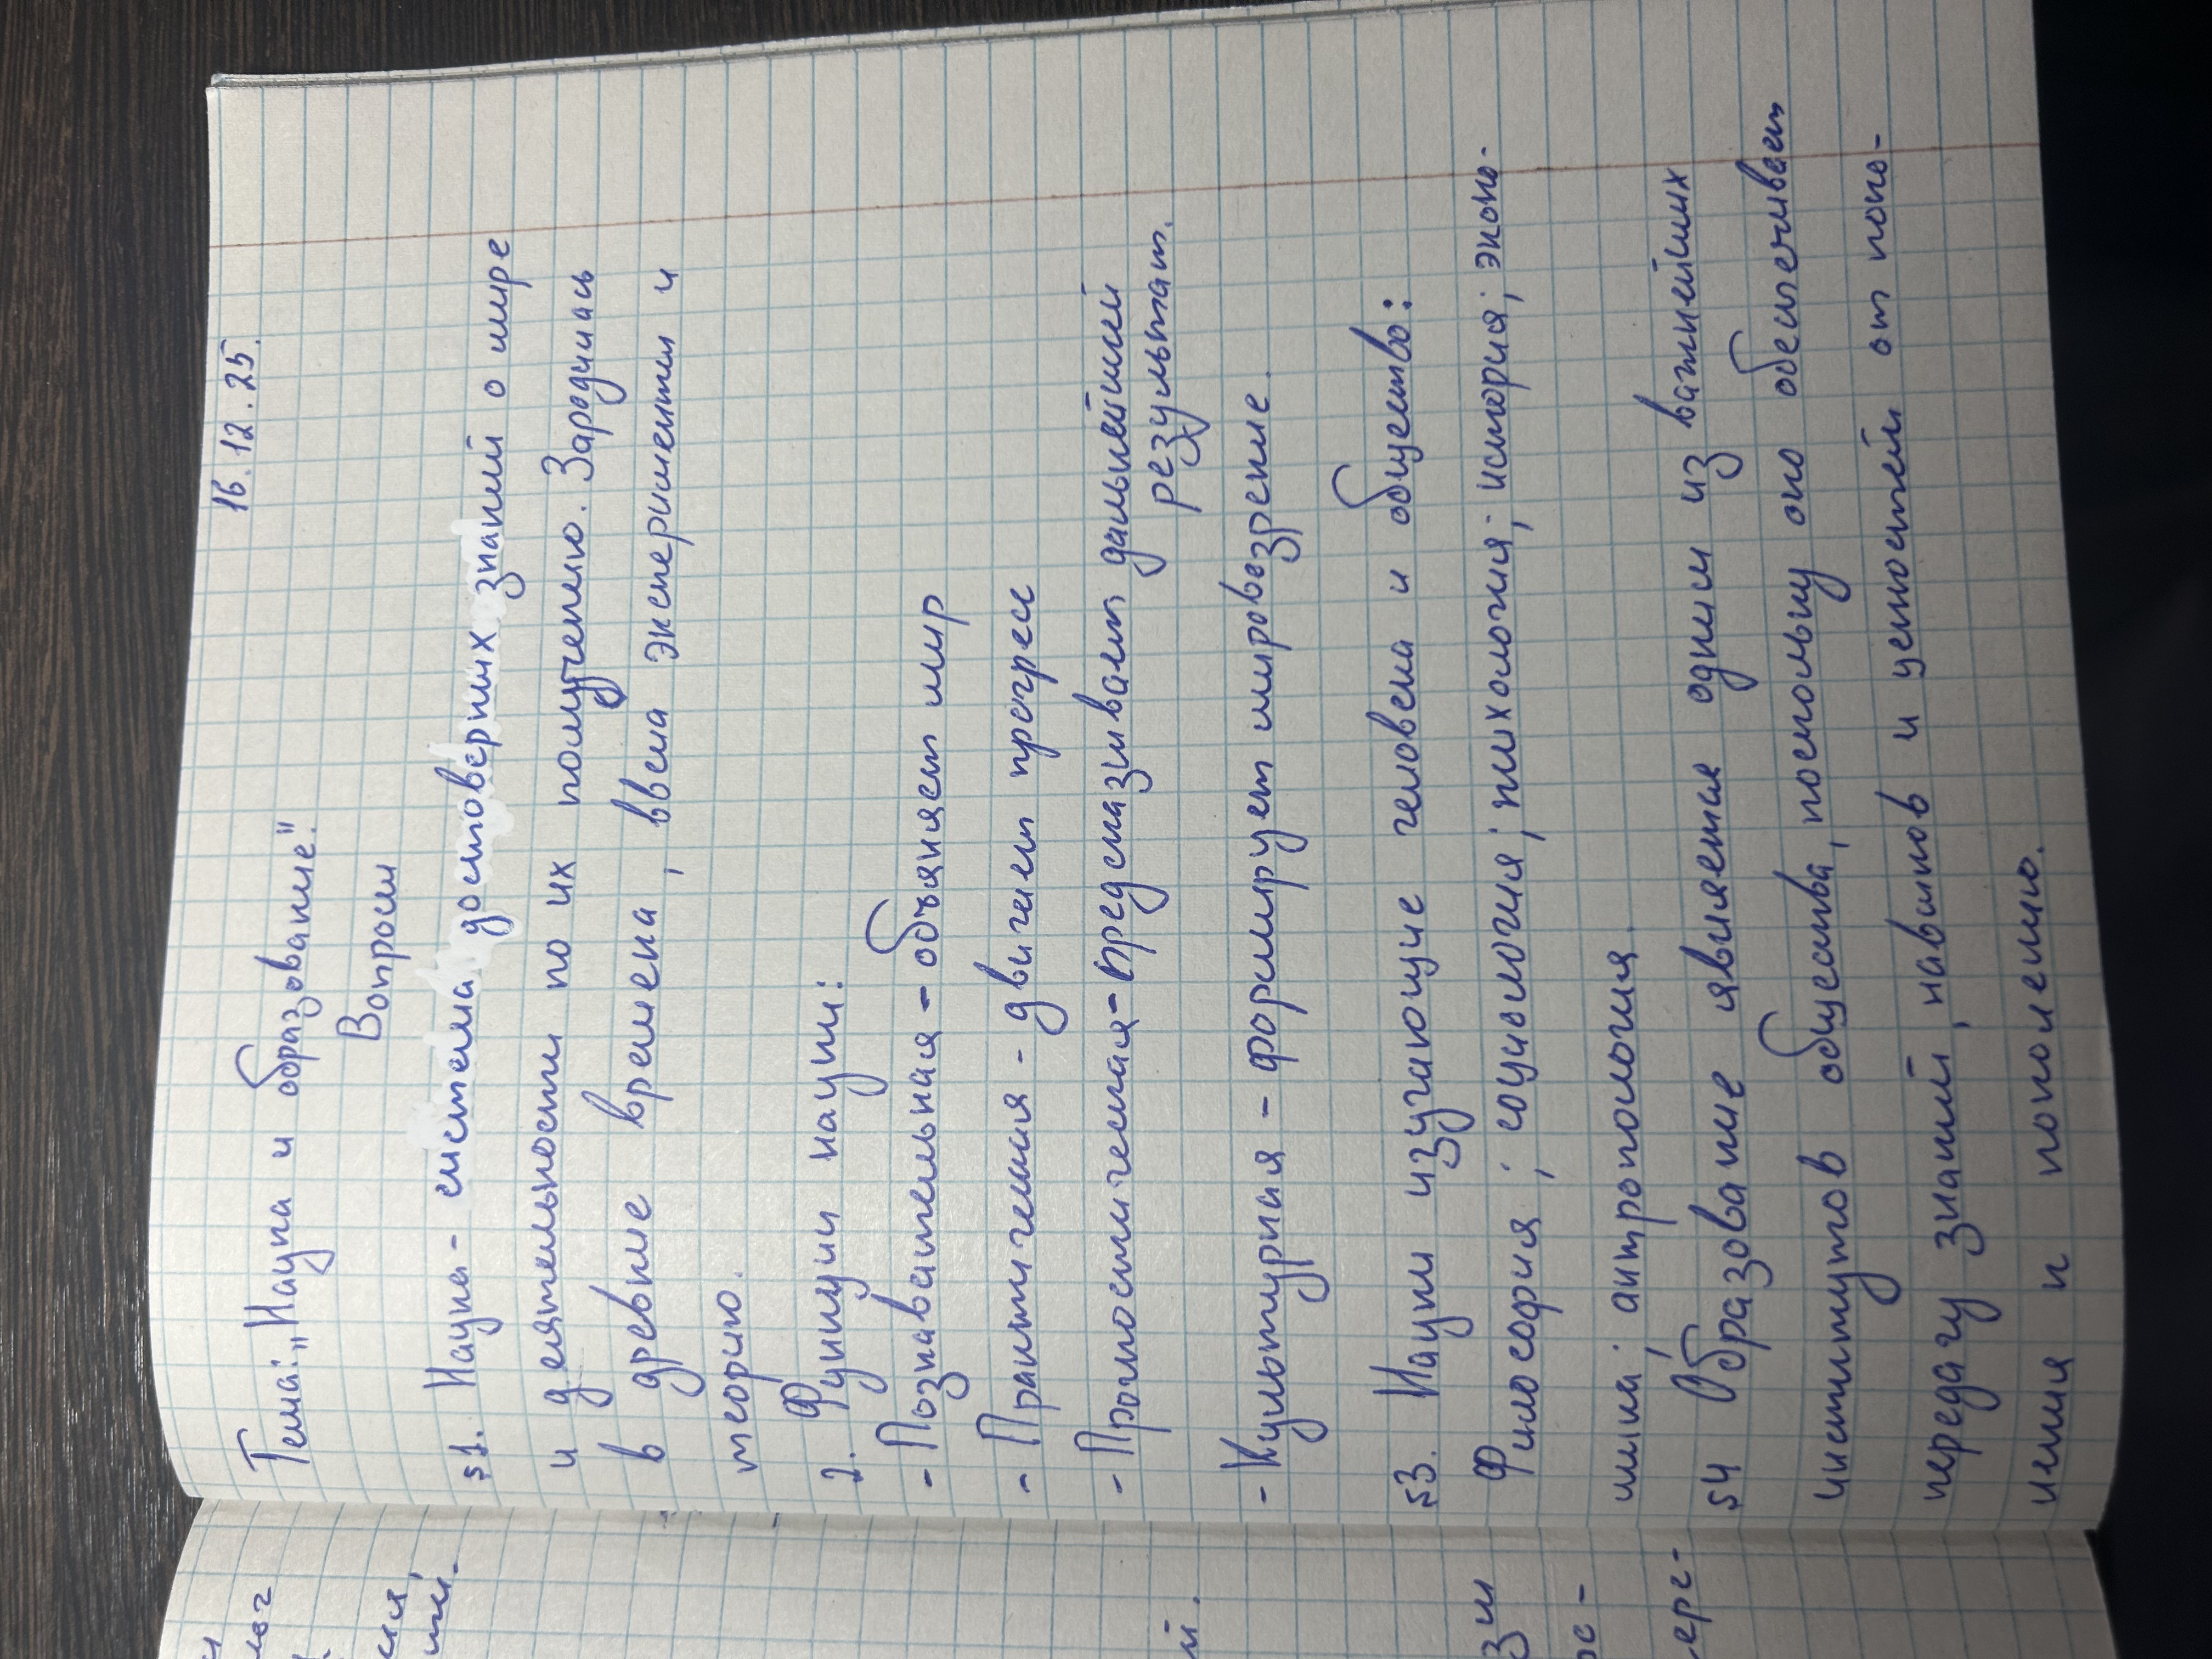 16.12.25.
Тема: „Наука и образование."
Вопросы
§1. Наука - система достоверных знаний о мире
и деятельности по их получению. Зародилась
в древние времена, ввела эксперименты и
теорию.
2. Функции науки:
- Познавательная - объясняет мир
- Практическая - двигает прогресс
- Прогностическая - предсказывает дальнейший
результат.
- Культурная - формирует мировоззрение.
§3. Науки изучающие человека и общество:
Философия; социология; психология; история; эконо-
мика; антропология.
§4 Образование является одним из важнейших
институтов общества, поскольку оно обеспечивает
передачу знаний, навыков и ценностей от поко-
ления к поколению.
й.
зи
ре-